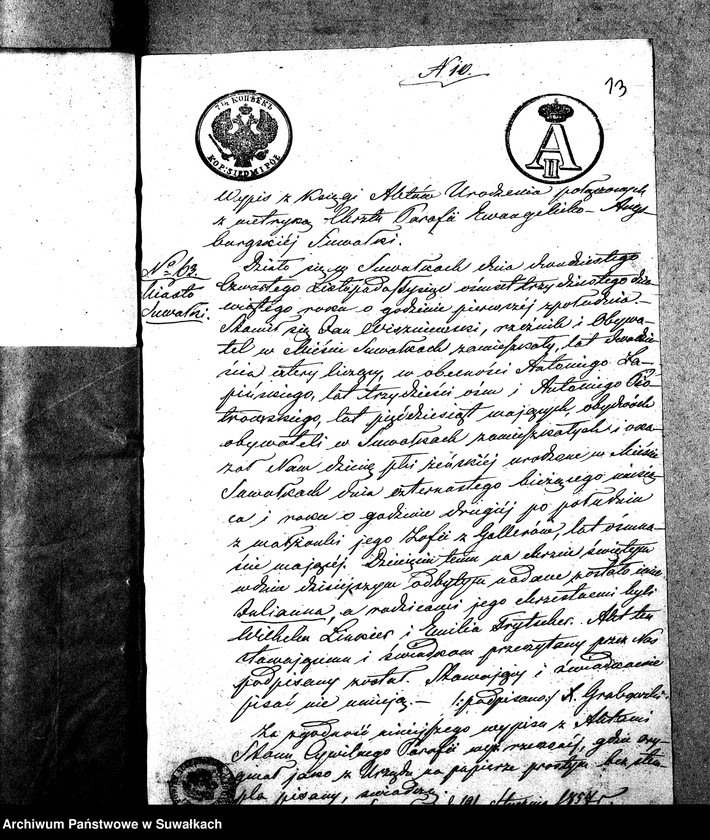 N 10.
13
7½ КОПѢЕКЪ
KOP: SIEDM I PÓŁ
A II
Wypis z Księgi Aktów Urodzenia połączonych
z metryką Chrztu Parafii Ewangelicko-Augs-
burgskiéj Suwałki.
No 63.
Miasto
Suwałki.
Działo się w Suwałkach dnia dwudziestego
czwartego Listopada tysiąc ośmset trzydziestego dzie-
wiątego roku o godzinie pierwszéj z południa.
Stawił się Jan Wiszniewski, rzeźnik i Obywa-
tel w Mieście Suwałkach zamieszkały, lat dwadzie-
ścia cztery liczący, w obecności Antoniego Ła-
pińskiego, lat trzydzieści ośm i Antoniego Pio-
trowskiego, lat pięćdziesiąt mających, obydwóch
obywateli w Suwałkach zamieszkałych i oka-
zał Nam dziecię płci żeńskiéj urodzone w Mieście
Suwałkach dnia czternastego bieżącego miesią-
ca i roku o godzinie drugiéj po południu
z małżonki jego Zofii z Gallerów, lat ośmna-
ście mającéj. Dziecięciu temu na chrzcie świętym
w dniu dzisiejszym odbytym nadane zostało imie
Julianna, a rodzicami jego chrzestnemi byli
Wilhelm Liński i Emilia Frytscher. Akt ten
stawającemu i świadkom przeczytany przez Nas
podpisany został. Stawający i świadkowie
pisać nie umieją. — (:podpisano:) X. Grabowski.
Za zgodność niniejszego wypisu z Aktami
Stanu Cywilnego Parafii wyż rzeczonéj, gdzie ory-
ginał jako z Urzędu na papierze prostym bez stem-
pla pisany, świadczę.
Stycznia 1857 r.
Archiwum Państwowe w Suwałkach